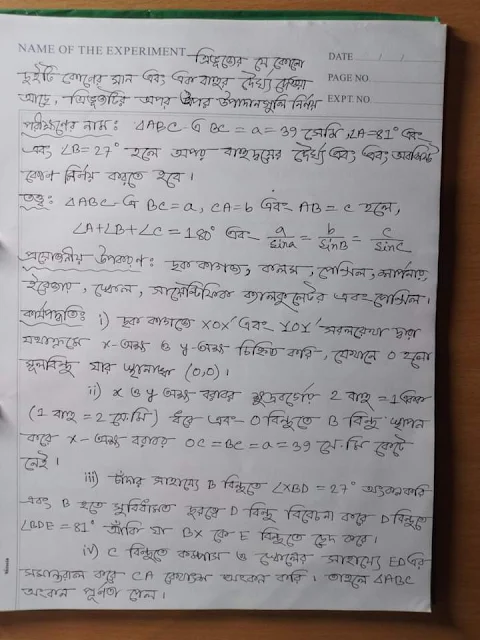 NAME OF THE EXPERIMENT ত্রিভুজের যে কোনো
DATE / /
দুইটি কোণের মান এবং এক বাহুর দৈর্ঘ্য দেওয়া
PAGE NO.
আছে, ত্রিভুজটির অপর উপাদানগুলি নির্ণয়
EXPT. NO.
পরীক্ষণের নাম: ΔABC এ BC = a = 39 সেমি, ∠A = 81° এবং
এবং ∠B = 27° হলে অপর বাহুদ্বয়ের দৈর্ঘ্য এবং অবশিষ্ট
কোণ নির্ণয় করতে হবে।
তত্ত্ব: ΔABC এ BC = a, CA = b এবং AB = c হলে,
∠A+∠B+∠C = 180° এবং a/sina = b/sinB = c/sinC
প্রয়োজনীয় উপকরণ: ছক কাগজ, কলম, পেন্সিল, শার্পনার,
ইরেজার, স্কেল, সায়েন্টিফিক ক্যালকুলেটর এবং পেন্সিল।
কার্যপদ্ধতি: i) ছক কাগজে XOX′ এবং YOY′ সরলরেখা দ্বারা
যথাক্রমে x-অক্ষ ও y-অক্ষ চিহ্নিত করি, যেখানে O হলো
মূলবিন্দু যার স্থানাঙ্ক (0,0)।
ii) x ও y অক্ষ বরাবর ক্ষুদ্রবর্গের 2 বাহু = 1 একক
(1 বাহু = 2 সে.মি) ধরে এবং O বিন্দুতে B বিন্দু স্থাপন
করে x-অক্ষ বরাবর OC = BC = a = 39 সে.মি কেটে
নেই।
iii) চাঁদার সাহায্যে B বিন্দুতে ∠XBD = 27° অংকন করি
এবং B হতে সুবিধামত দূরত্বে D বিন্দু বিবেচনা করে D বিন্দুতে
∠BDE = 81° আঁকি যা BX কে E বিন্দুতে ছেদ করে।
iv) C বিন্দুতে কম্পাস ও স্কেলের সাহায্যে ED এর
সমান্তরাল করে CA রেখাংশ অংকন করি। তাহলে ΔABC
অংকন পূর্ণতা পেল।